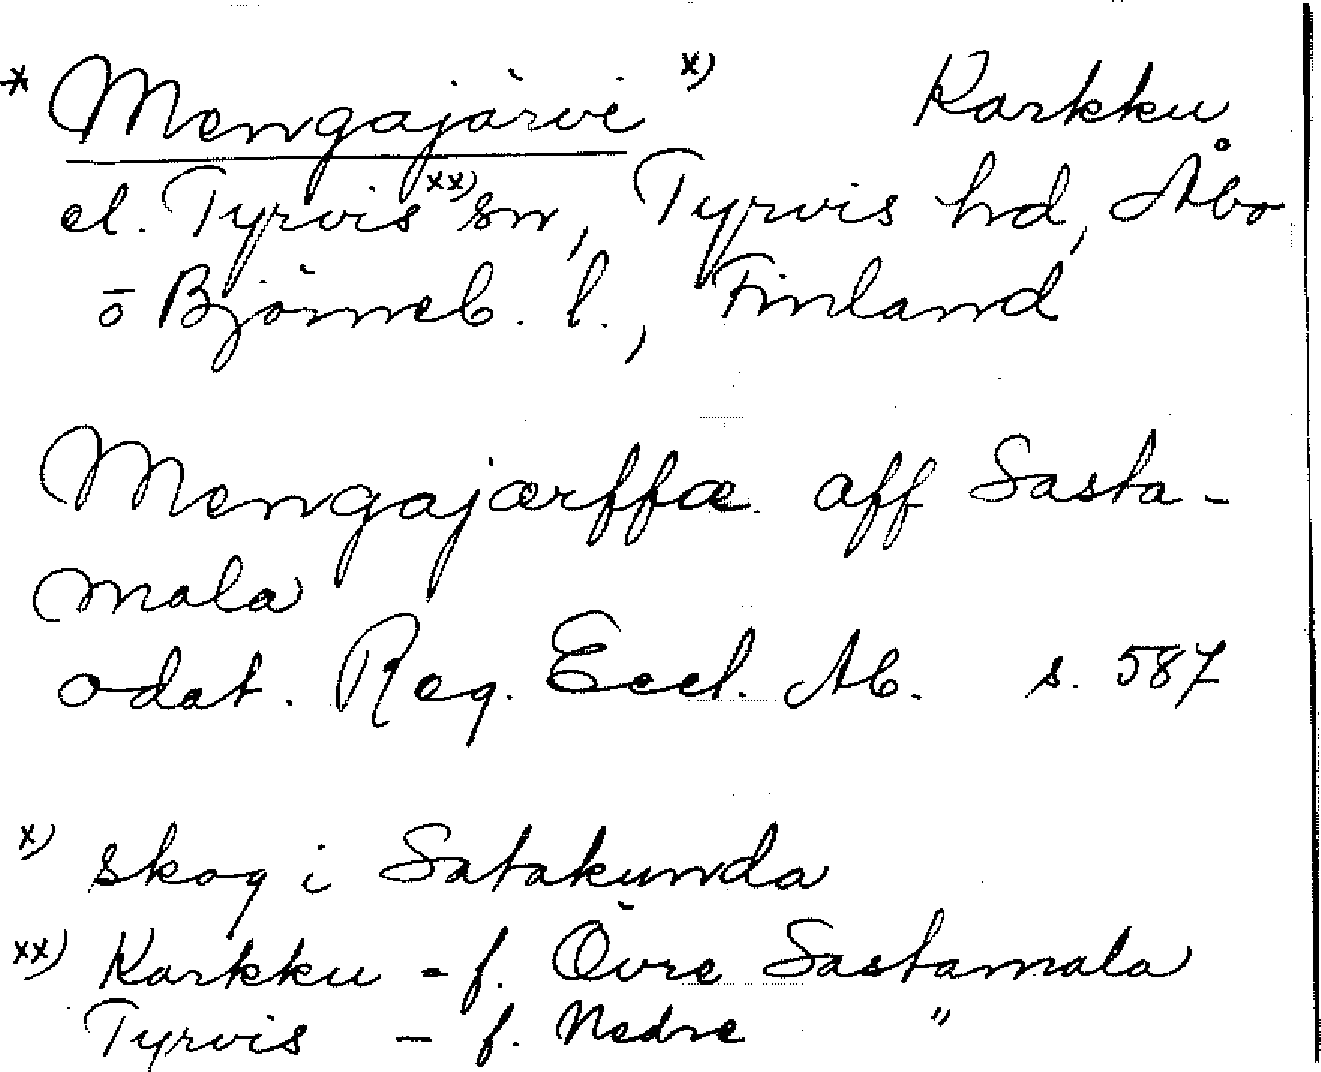 * Mengajärvi x) Karkku
el. Tyrvis xx) sn, Tyrvis hd, Åbo
o Björneb. l., Finland
Mengajærffæ aff Sasta-
mala
odat. Reg. Eccl. Ab. s. 587
x) skog i Satakunda
xx) Karkku - f. Övre Sastamala
Tyrvis - f. Nedre "